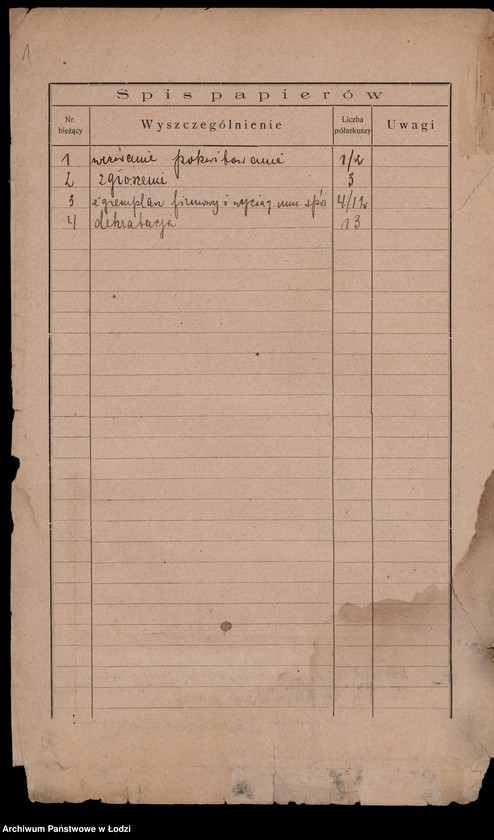 1
Spis papierów
Nr. bieżący Wyszczególnienie Liczba półarkuszy Uwagi
1 wezwanie pokwitowanie 1/2
2 zgłoszenie 3
3 egzemplarz firmowy i wyciąg. umo spół 4/12
4 deklaracja 13
Archiwum Państwowe w Łodzi